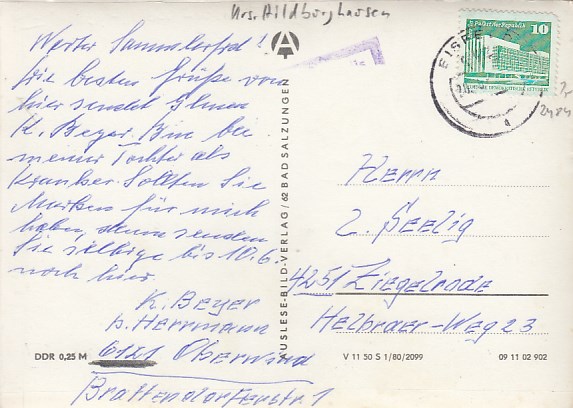 Krs. Hildburghausen
Werter Sammlerfrd!
Die besten Grüße von
hier sendet Ihnen
K. Beyer. Bin bei
meiner Tochter als
Kranker. Sollten Sie
Marken für mich
haben, dann senden
Sie selbige bis 10.6.
noch hier.
K. Beyer
b. Herrmann
6121 Oberwind
Brattendorferstr. 1
DDR 0,25 M
AUSLESE-BILD-VERLAG / 62 BAD SALZUNGEN
Palast der Republik 10
EISFE
a
Herrn
Z. Seelig
4251 Ziegelrode
Helbraer-Weg 23
V 11 50 S 1/80/2099
09 11 02 902